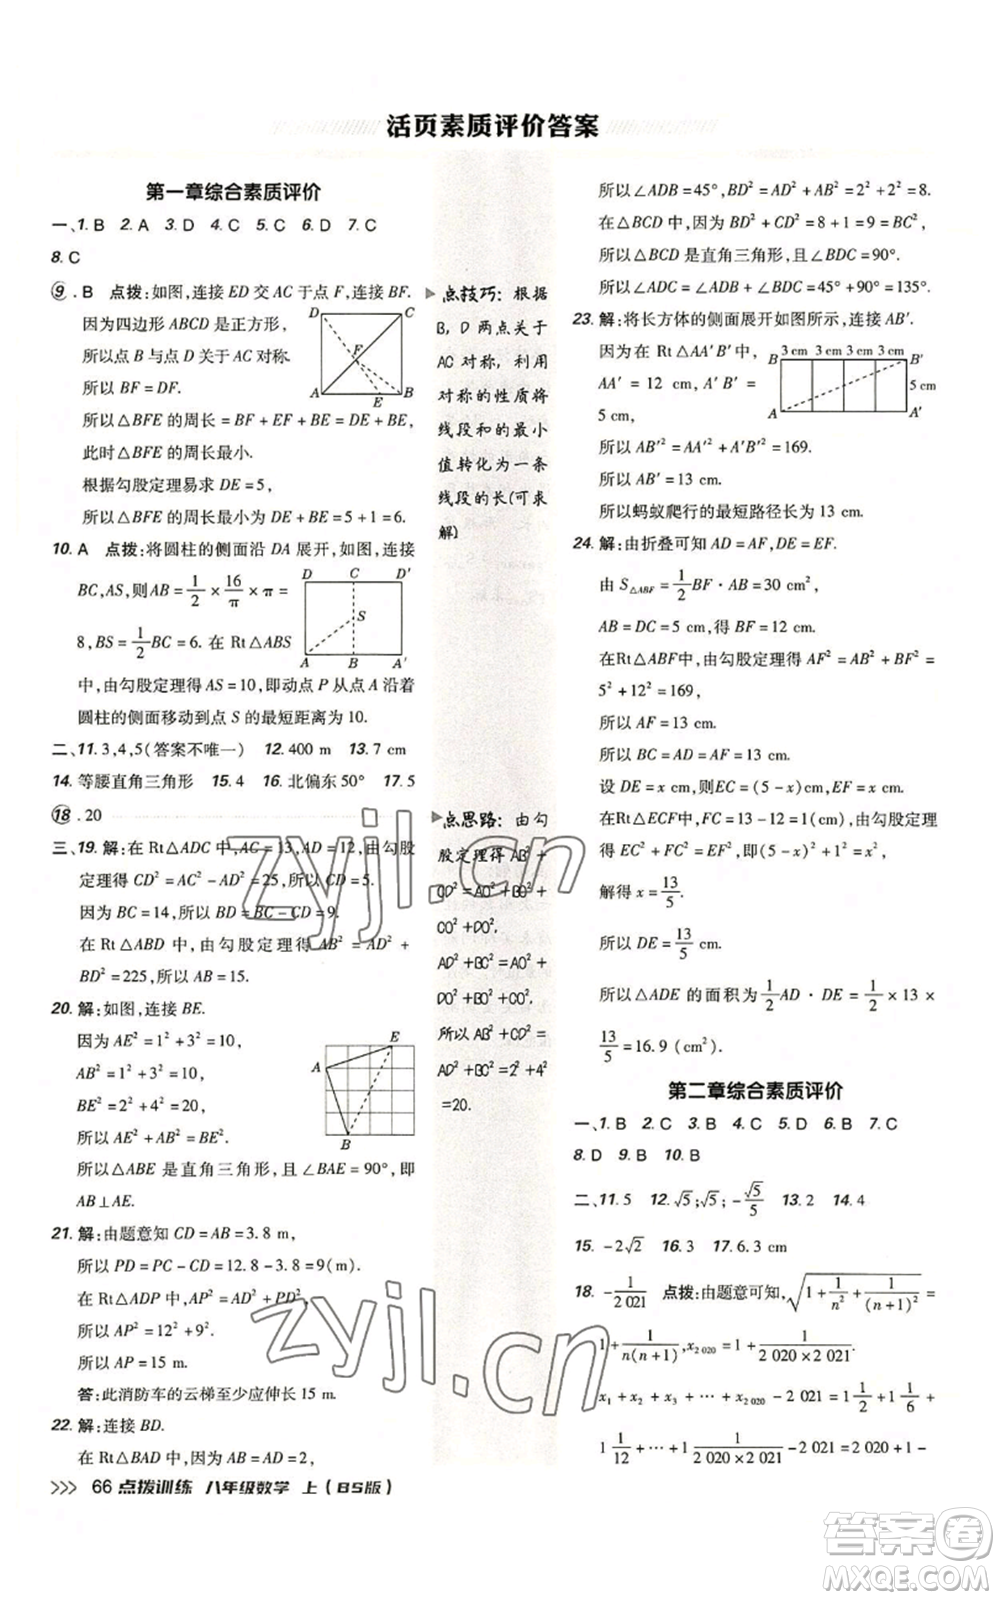 活页素质评价答案
第一章综合素质评价
一、1. B 2. A 3. D 4. C 5. C 6. D 7. C
8. C
9. B 点拨:如图,连接 ED 交 AC 于点 F,连接 BF.
因为四边形 ABCD 是正方形,
所以点 B 与点 D 关于 AC 对称.
所以 BF = DF.
所以△BFE 的周长 = BF + EF + BE = DE + BE,
此时△BFE 的周长最小.
根据勾股定理易求 DE = 5,
所以△BFE 的周长最小为 DE + BE = 5 + 1 = 6.
D C F A E B
10. A 点拨:将圆柱的侧面沿 DA 展开,如图,连接
BC,AS,则 AB = 1/2 × 16/π × π =
8,BS = 1/2 BC = 6. 在 Rt△ABS
中,由勾股定理得 AS = 10,即动点 P 从点 A 沿着
圆柱的侧面移动到点 S 的最短距离为 10.
D C D′ S A B A′
二、11. 3,4,5(答案不唯一) 12. 400 m 13. 7 cm
14. 等腰直角三角形 15. 4 16. 北偏东 50° 17. 5
18. 20
三、19. 解:在 Rt△ADC 中,AC = 13,AD = 12,由勾股
定理得 CD² = AC² − AD² = 25,所以 CD = 5.
因为 BC = 14,所以 BD = BC − CD = 9.
在 Rt△ABD 中,由勾股定理得 AB² = AD² +
BD² = 225,所以 AB = 15.
20. 解:如图,连接 BE.
因为 AE² = 1² + 3² = 10,
AB² = 1² + 3² = 10,
BE² = 2² + 4² = 20,
所以 AE² + AB² = BE².
所以△ABE 是直角三角形,且∠BAE = 90°,即
AB⊥AE.
E A B
21. 解:由题意知 CD = AB = 3. 8 m,
所以 PD = PC − CD = 12. 8 − 3. 8 = 9(m).
在 Rt△ADP 中,AP² = AD² + PD²,
所以 AP² = 12² + 9².
所以 AP = 15 m.
答:此消防车的云梯至少应伸长 15 m.
22. 解:连接 BD.
在 Rt△BAD 中,因为 AB = AD = 2,
点技巧:根据
B,D 两点关于
AC 对称,利用
对称的性质将
线段和的最小
值转化为一条
线段的长(可求
解)
点思路:由勾
股定理得 AB² +
CD² = AO² + BO² +
CO² + DO²,
AD² + BC² = AO² +
DO² + BO² + CO².
所以 AB² + CD² =
AD² + BC² = 2² + 4²
=20.
所以∠ADB = 45°,BD² = AD² + AB² = 2² + 2² = 8.
在△BCD 中,因为 BD² + CD² = 8 + 1 = 9 = BC²,
所以△BCD 是直角三角形,且∠BDC = 90°.
所以∠ADC = ∠ADB + ∠BDC = 45° + 90° = 135°.
23. 解:将长方体的侧面展开如图所示,连接 AB′.
因为在 Rt△AA′B′中,
AA′ = 12 cm,A′B′ =
5 cm,
B 3 cm 3 cm 3 cm 3 cm B′
5 cm
A A′
所以 AB′² = AA′² + A′B′² = 169.
所以 AB′ = 13 cm.
所以蚂蚁爬行的最短路径长为 13 cm.
24. 解:由折叠可知 AD = AF,DE = EF.
由 S△ABF = 1/2 BF · AB = 30 cm²,
AB = DC = 5 cm,得 BF = 12 cm.
在Rt△ABF中,由勾股定理得 AF² = AB² + BF² =
5² + 12² = 169,
所以 AF = 13 cm.
所以 BC = AD = AF = 13 cm.
设 DE = x cm,则EC = (5 − x)cm,EF = x cm.
在Rt△ECF中,FC = 13 − 12 = 1(cm),由勾股定理
得 EC² + FC² = EF²,即(5 − x)² + 1² = x².
解得 x = 13/5.
所以 DE = 13/5 cm.
所以△ADE 的面积为 1/2 AD · DE = 1/2 × 13 ×
13/5 = 16. 9(cm²).
第二章综合素质评价
一、1. B 2. C 3. B 4. C 5. D 6. B 7. C
8. D 9. B 10. B
二、11. 5 12. √5;√5;−√5/5 13. 2 14. 4
15. −2√2 16. 3 17. 6. 3 cm
18. −1/2 021 点拨:由题意可知,√(1 + 1/n² + 1/(n+1)²) =
1 + 1/n(n+1),x₂ ₀₂₀ = 1 + 1/2 020×2 021,
x₁ + x₂ + x₃ + ⋯ + x₂ ₀₂₀ − 2 021 = 1 + 1/2 + 1 +
1/6 + ⋯ + 1 + 1/2 020×2 021 − 2 021 = 2 020 +
>>> 66 点拨训练 八年级数学 上(BS版)
zyjl.cn
zyjl.cn
答案圈
MXQE.COM